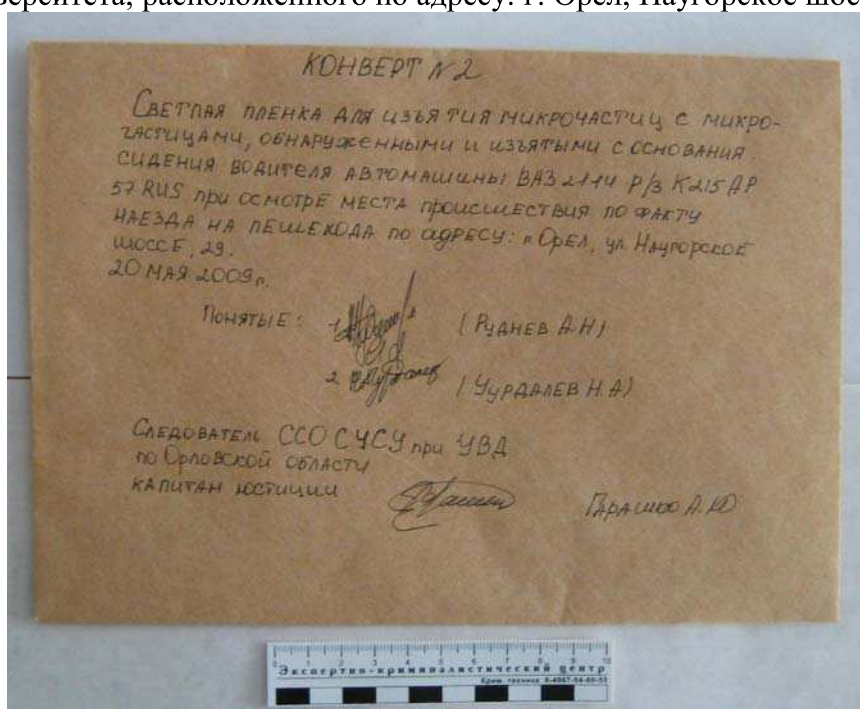 верситета, расположенного по адресу: г. Орел, Наугорское шос
КОНВЕРТ №2
СВЕТЛАЯ ПЛЕНКА ДЛЯ ИЗЪЯТИЯ МИКРОЧАСТИЦ С МИКРО-
ЧАСТИЦАМИ, ОБНАРУЖЕННЫМИ И ИЗЪЯТЫМИ С ОСНОВАНИЯ
СИДЕНИЯ ВОДИТЕЛЯ АВТОМАШИНЫ ВАЗ 2114 Р/З К215АР
57 RUS ПРИ ОСМОТРЕ МЕСТА ПРОИСШЕСТВИЯ ПО ФАКТУ
НАЕЗДА НА ПЕШЕХОДА ПО АДРЕСУ: г. ОРЕЛ, ул. НАУГОРСКОЕ
ШОССЕ, 29.
20 МАЯ 2009г.
ПОНЯТЫЕ: 1. (РУДНЕВ А.Н)
2. (УУРДАЛЕВ Н.А)
СЛЕДОВАТЕЛЬ ССО СЧСУ при УВД
по ОРЛОВСКОЙ ОБЛАСТИ
КАПИТАН ЮСТИЦИИ ГАРАШКО А.Ю
0 1 2 3 4 5 6 7 8 9 10
Экспертно-криминалистический центр